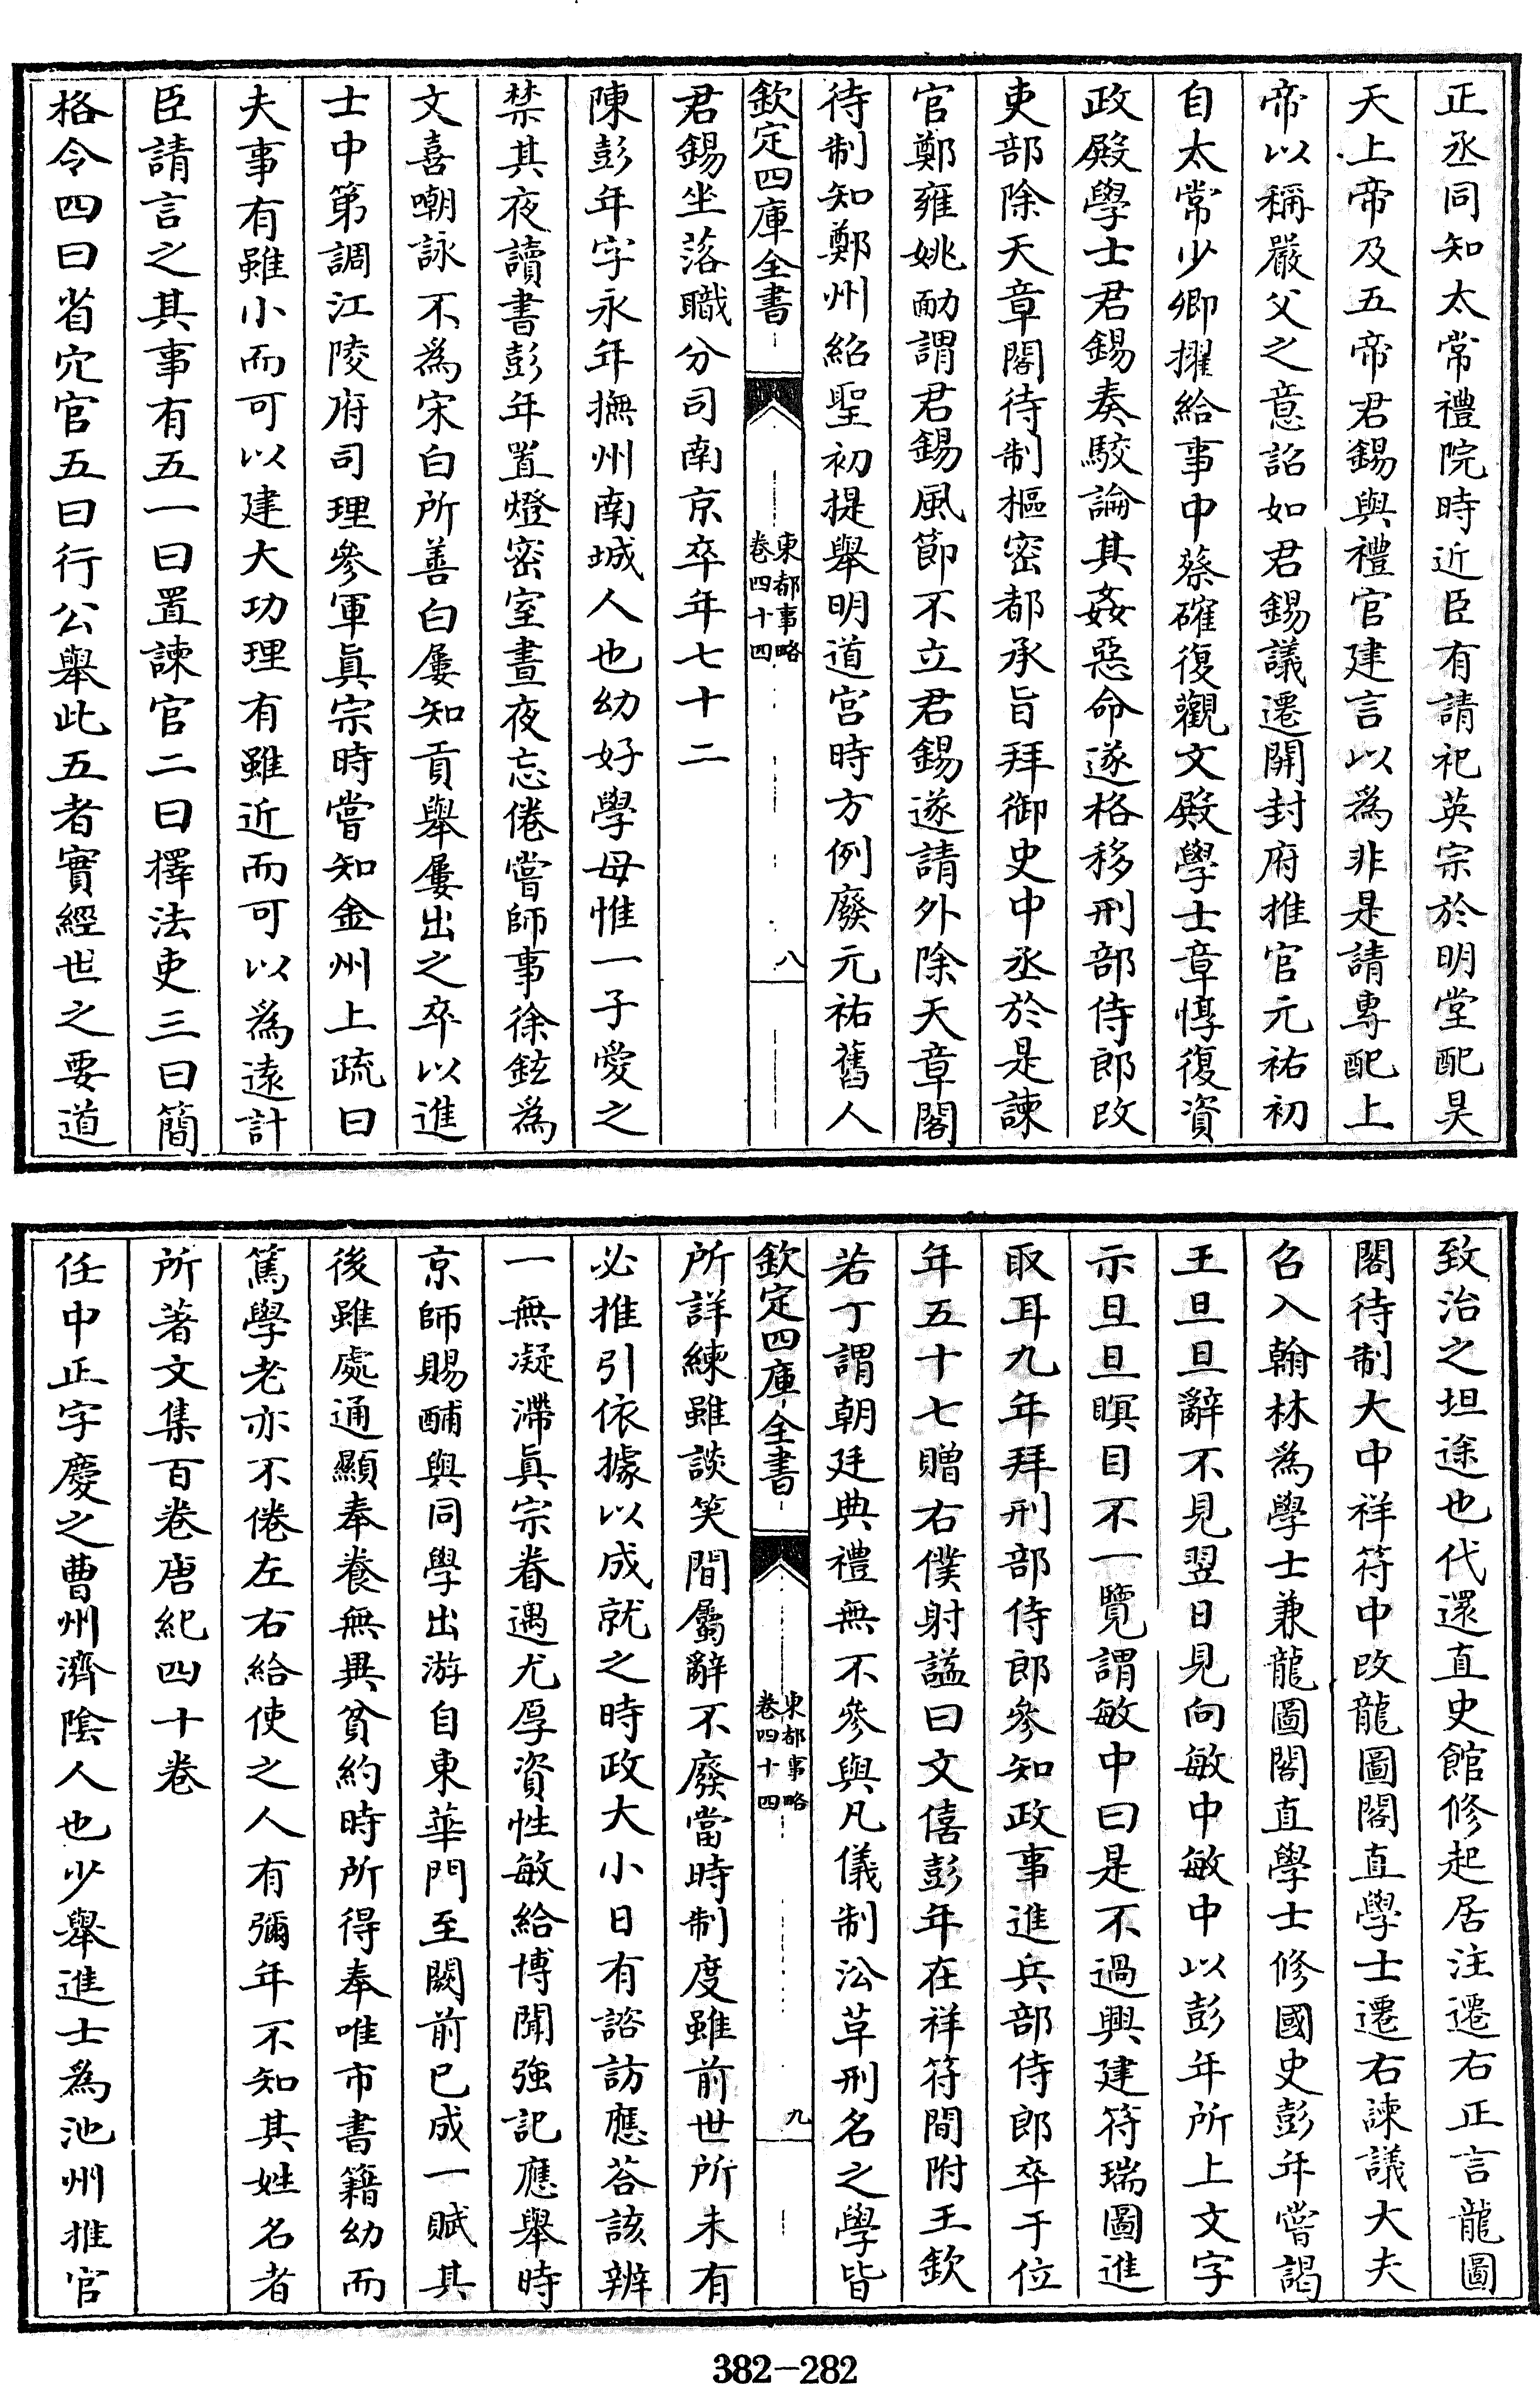 正丞同知太常禮院時近臣有請祀英宗於明堂配昊
天上帝及五帝君錫與禮官建言以為非是請專配上
帝以稱嚴父之意詔如君錫議遷開封府推官元祐初
自太常少卿擢給事中蔡確復觀文殿學士章惇復資
政殿學士君錫奏駮論其姦惡命遂格移刑部侍郎改
吏部除天章閣待制樞密都承旨拜御史中丞於是諫
官鄭雍姚勔謂君錫風節不立君錫遂請外除天章閣
待制知鄭州紹聖初提舉明道宮時方例廢元祐舊人
欽定四庫全書
東都事略
卷四十四
八
君錫坐落職分司南京卒年七十二
陳彭年字永年撫州南城人也幼好學母惟一子愛之
禁其夜讀書彭年置燈密室晝夜忘倦嘗師事徐鉉為
文喜嘲詠不為宋白所善白屢知貢舉屢出之卒以進
士中第調江陵府司理參軍眞宗時嘗知金州上疏曰
夫事有雖小而可以建大功理有雖近而可以為遠計
臣請言之其事有五一曰置諫官二曰擇法吏三曰簡
格令四曰省宂官五曰行公舉此五者實經世之要道
致治之坦途也代還直史館修起居注遷右正言龍圖
閣待制大中祥符中改龍圖閣直學士遷右諫議大夫
召入翰林為學士兼龍圖閣直學士修國史彭年嘗謁
王旦旦辭不見翌日見向敏中敏中以彭年所上文字
示旦旦瞑目不一覽謂敏中曰是不過興建符瑞圖進
取耳九年拜刑部侍郎參知政事進兵部侍郎卒于位
年五十七贈右僕射謚曰文僖彭年在祥符間附王欽
若丁謂朝廷典禮無不參與凡儀制㳂革刑名之學皆
欽定四庫全書
東都事略
卷四十四
九
所詳練雖談笑間屬辭不廢當時制度雖前世所未有
必推引依據以成就之時政大小日有諮訪應荅該辨
一無凝滯眞宗眷遇尤厚資性敏給博聞強記應舉時
京師賜酺與同學出游自東華門至闕前已成一賦其
後雖處通顯奉養無異貧約時所得奉唯市書籍幼而
篤學老亦不倦左右給使之人有彌年不知其姓名者
所著文集百卷唐紀四十卷
任中正字慶之曹州濟陰人也少舉進士為池州推官
382-282